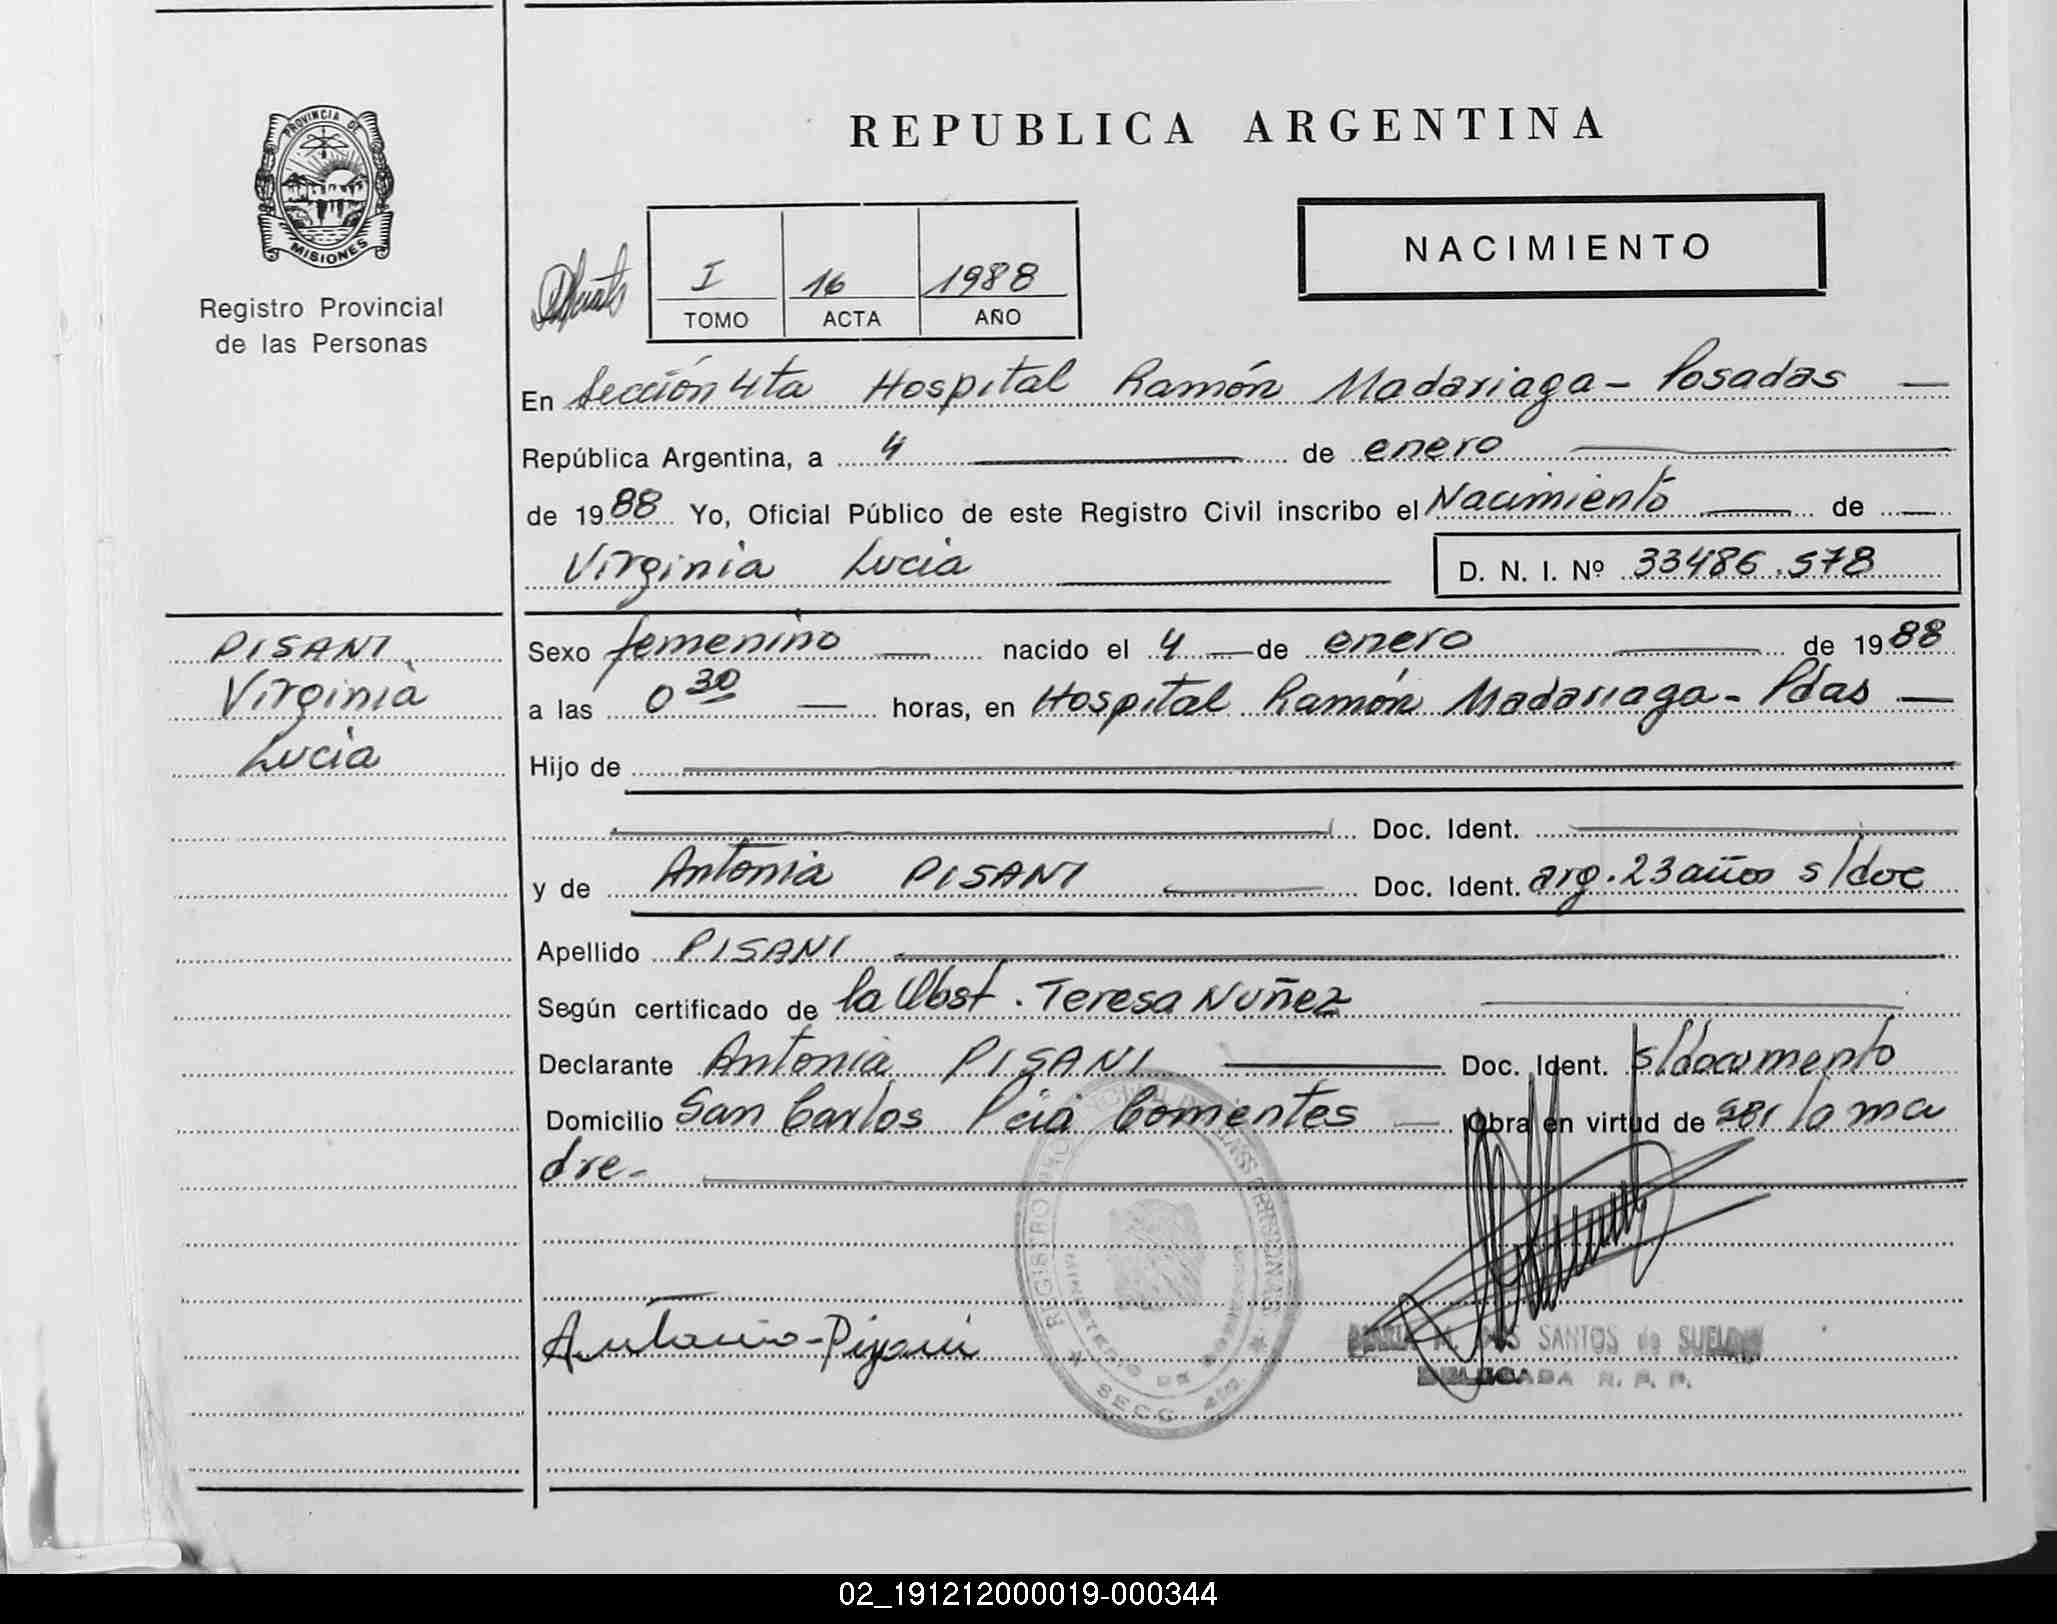 PROVINCIA DE
MISIONES
Registro Provincial
de las Personas
REPUBLICA ARGENTINA
NACIMIENTO
I 16 1988
TOMO ACTA AÑO
En Sección 4ta Hospital Ramón Madariaga - Posadas
República Argentina, a 4 de enero
de 1988 Yo, Oficial Público de este Registro Civil inscribo el Nacimiento de
Virginia Lucia D. N. I. Nº 33486.578
PISANI
Virginia
Lucia
Sexo femenino nacido el 4 de enero de 1988
a las 0 30 horas, en Hospital Ramón Madariaga - Pdas
Hijo de
Doc. Ident.
y de Antonia PISANI Doc. Ident. arg. 23 años s/doc
Apellido PISANI
Según certificado de la Obst. Teresa Nuñez
Declarante Antonia PISANI Doc. Ident. s/documento
Domicilio San Carlos Pcia Corrientes Obra en virtud de ser la ma
dre.
Antonia - Pisani
REGISTRO
MINISTERIO DE
SECC. 4ta.
MARIA M. DOS SANTOS de
DELEGADA R. P. P.
02_191212000019-000344